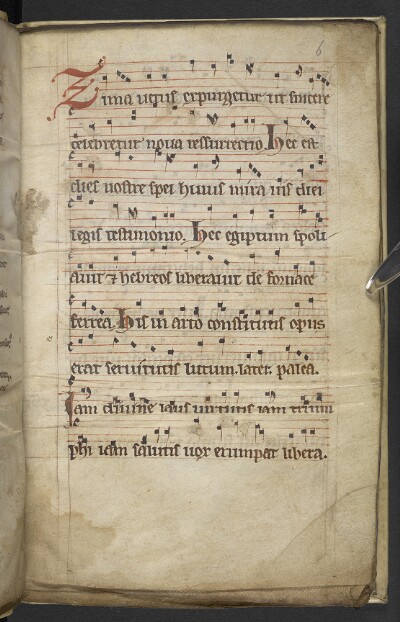 6
Zima uetus expurgetur ut sincere
celebretur noua resurrectio. Hec est
dies nostre spei huius mira uis diei
legis testimonio. Hec egiptum spoli
auit ⁊ hebreos liberauit de fornace
ferrea. His in arto constitutis opus
erat seruitutis lutum. later. palea.
Iam diuine laus uirtutis iam trium
phi iam salutis uox erumpat libera.